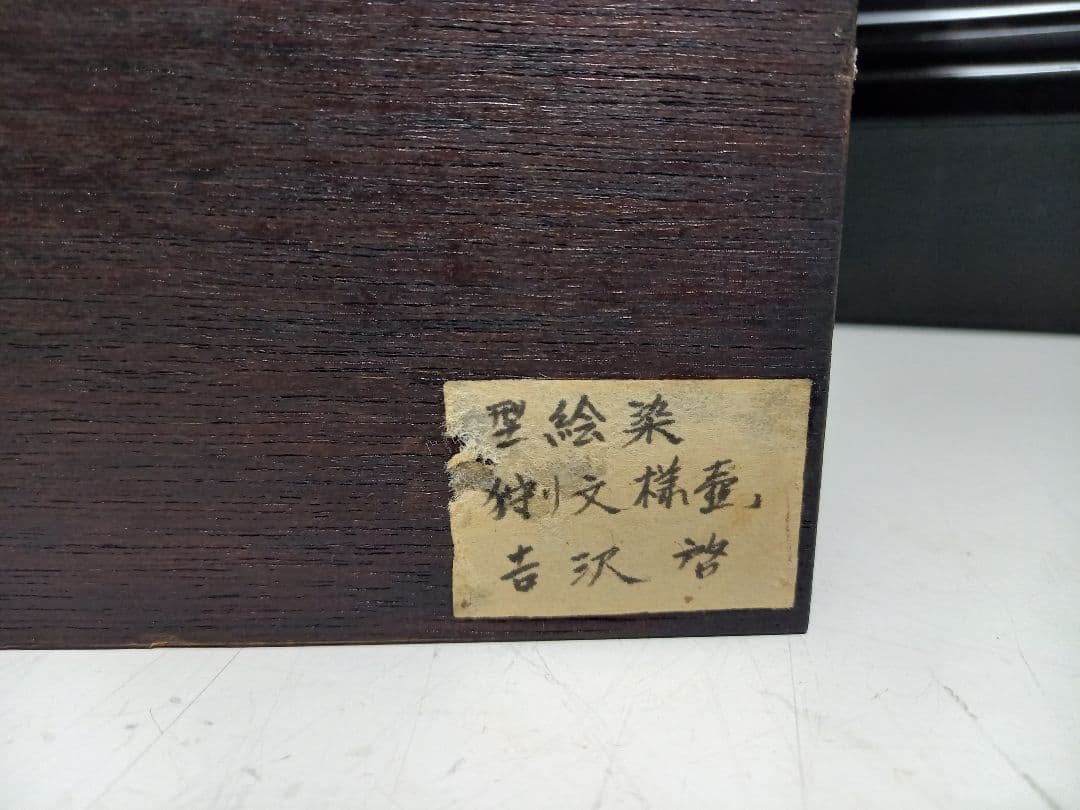 型絵染
狩り文様壺」
吉沢 啓